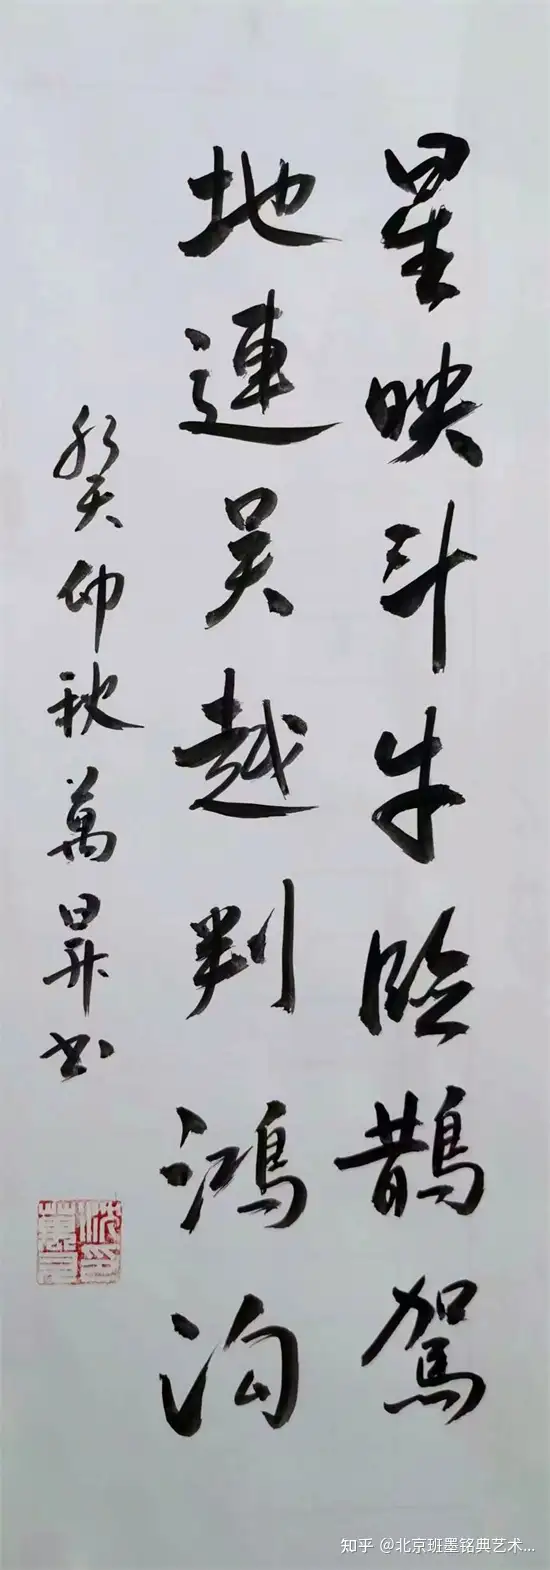 星映斗牛臨鵲駕
地連吴越判鴻沟
癸卯秋萬昇书
知乎 @北京班墨铭典艺术...